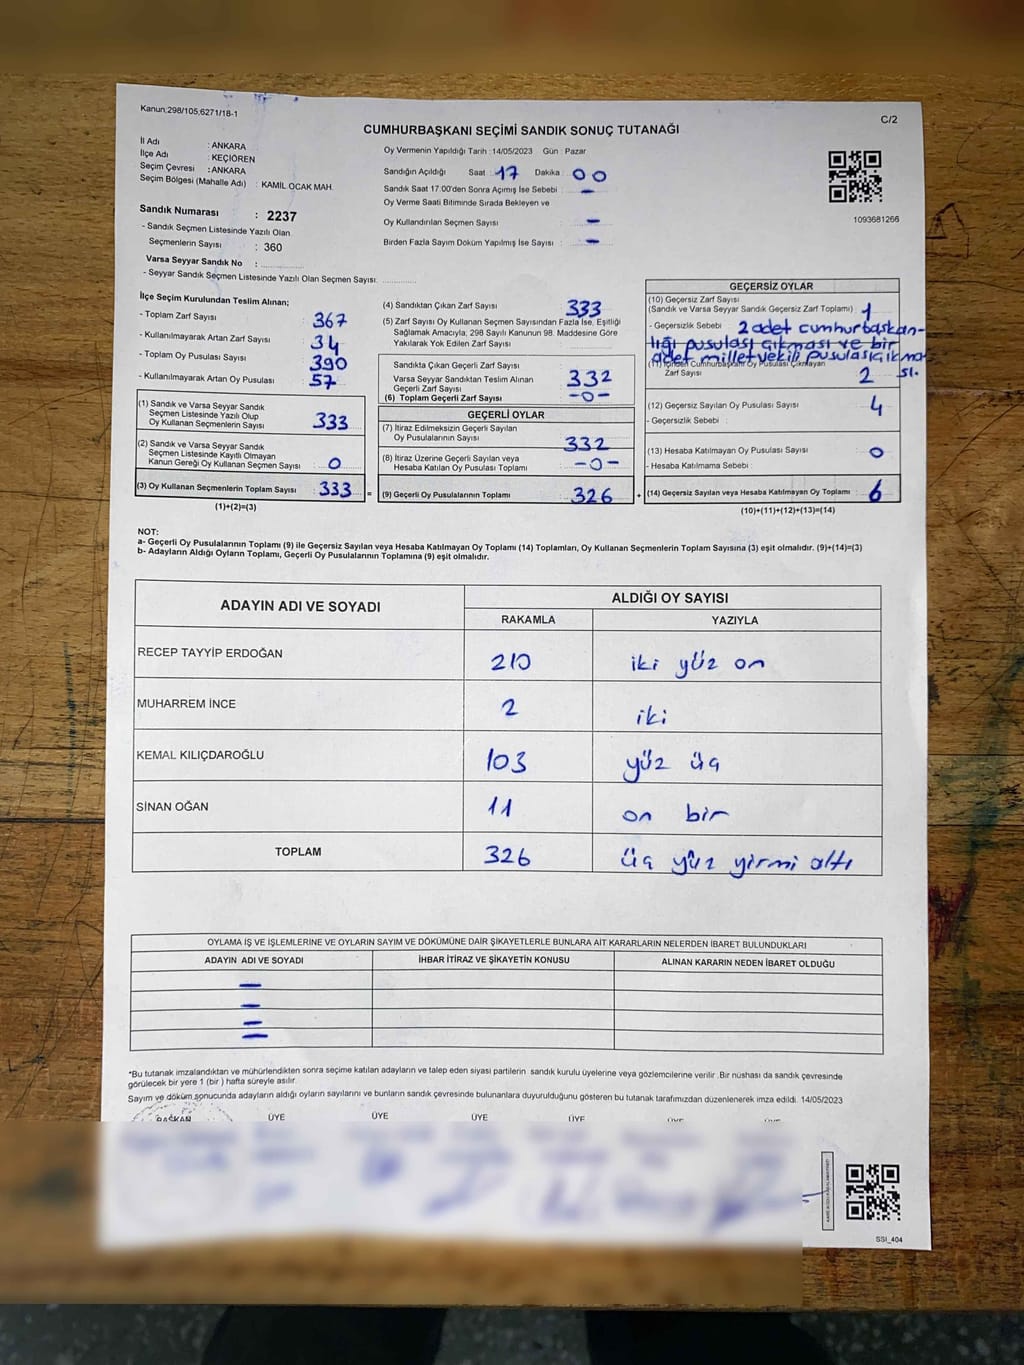 Kanun:298/105,6271/18-1
C/2
CUMHURBAŞKANI SEÇİMİ SANDIK SONUÇ TUTANAĞI
İl Adı : ANKARA
İlçe Adı : KEÇİÖREN
Seçim Çevresi : ANKARA
Seçim Bölgesi (Mahalle Adı) : KAMİL OCAK MAH.
Sandık Numarası : 2237
- Sandık Seçmen Listesinde Yazılı Olan
Seçmenlerin Sayısı : 360
Varsa Seyyar Sandık No :
- Seyyar Sandık Seçmen Listesinde Yazılı Olan Seçmen Sayısı:
Oy Vermenin Yapıldığı Tarih :14/05/2023 Gün : Pazar
Sandığın Açıldığı Saat : 17 Dakika : 00
Sandık Saat 17:00'den Sonra Açımış İse Sebebi : –
Oy Verme Saati Bitiminde Sırada Bekleyen ve
Oy Kullandırılan Seçmen Sayısı : –
Birden Fazla Sayım Döküm Yapılmış İse Sayısı : –
1093681266
İlçe Seçim Kurulundan Teslim Alınan;
- Toplam Zarf Sayısı : 367
- Kullanılmayarak Artan Zarf Sayısı : 34
- Toplam Oy Pusulası Sayısı : 390
- Kullanılmayarak Artan Oy Pusulası : 57
(1) Sandık ve Varsa Seyyar Sandık
Seçmen Listesinde Yazılı Olup
Oy Kullanan Seçmenlerin Sayısı : 333
(2) Sandık ve Varsa Seyyar Sandık
Seçmen Listesinde Kayıtlı Olmayan
Kanun Gereği Oy Kullanan Seçmen Sayısı : 0
(3) Oy Kullanan Seçmenlerin Toplam Sayısı : 333 =
(1)+(2)=(3)
(4) Sandıktan Çıkan Zarf Sayısı : 333
(5) Zarf Sayısı Oy Kullanan Seçmen Sayısından Fazla İse, Eşitliği
Sağlamak Amacıyla, 298 Sayılı Kanunun 98. Maddesine Göre
Yakılarak Yok Edilen Zarf Sayısı :
Sandıkta Çıkan Geçerli Zarf Sayısı : 332
Varsa Seyyar Sandıktan Teslim Alınan
Geçerli Zarf Sayısı : -0-
(6) Toplam Geçerli Zarf Sayısı :
GEÇERLİ OYLAR
(7) İtiraz Edilmeksizin Geçerli Sayılan
Oy Pusulalarının Sayısı : 332
(8) İtiraz Üzerine Geçerli Sayılan veya
Hesaba Katılan Oy Pusulası Toplamı : -0-
(9) Geçerli Oy Pusulalarının Toplamı : 326 +
GEÇERSİZ OYLAR
(10) Geçersiz Zarf Sayısı
(Sandık ve Varsa Seyyar Sandık Geçersiz Zarf Toplamı) : 1
- Geçersizlik Sebebi : 2 adet cumhurbaşkan-
lığı pusulası çıkması ve bir
adet milletvekili pusulası çıkma
sı.
(11) İçinden Cumhurbaşkanı Oy Pusulası Çıkmayan
Zarf Sayısı : 2
(12) Geçersiz Sayılan Oy Pusulası Sayısı : 4
- Geçersizlik Sebebi :
(13) Hesaba Katılmayan Oy Pusulası Sayısı : 0
- Hesaba Katılmama Sebebi :
(14) Geçersiz Sayılan veya Hesaba Katılmayan Oy Toplamı : 6
(10)+(11)+(12)+(13)=(14)
NOT:
a- Geçerli Oy Pusulalarının Toplamı (9) ile Geçersiz Sayılan veya Hesaba Katılmayan Oy Toplamı (14) Toplamları, Oy Kullanan Seçmenlerin Toplam Sayısına (3) eşit olmalıdır. (9)+(14)=(3)
b- Adayların Aldığı Oyların Toplamı, Geçerli Oy Pusulalarının Toplamına (9) eşit olmalıdır.
ADAYIN ADI VE SOYADI
ALDIĞI OY SAYISI
RAKAMLA YAZIYLA
RECEP TAYYİP ERDOĞAN 210 iki yüz on
MUHARREM İNCE 2 iki
KEMAL KILIÇDAROĞLU 103 yüz üç
SİNAN OĞAN 11 on bir
TOPLAM 326 üç yüz yirmi altı
OYLAMA İŞ VE İŞLEMLERİNE VE OYLARIN SAYIM VE DÖKÜMÜNE DAİR ŞİKAYETLERLE BUNLARA AİT KARARLARIN NELERDEN İBARET BULUNDUKLARI
ADAYIN ADI VE SOYADI İHBAR İTİRAZ VE ŞİKAYETİN KONUSU ALINAN KARARIN NEDEN İBARET OLDUĞU
–
–
–
–
*Bu tutanak imzalandıktan ve mühürlendikten sonra seçime katılan adayların ve talep eden siyasi partilerin sandık kurulu üyelerine veya gözlemcilerine verilir. Bir nüshası da sandık çevresinde
görülecek bir yere 1 (bir) hafta süreyle asılır.
Sayım ve döküm sonucunda adayların aldığı oyların sayılarını ve bunların sandık çevresinde bulunanlara duyurulduğunu gösteren bu tutanak tarafımızdan düzenlenerek imza edildi. 14/05/2023
BAŞKAN ÜYE ÜYE ÜYE ÜYE ÜYE ÜYE
SSI_404